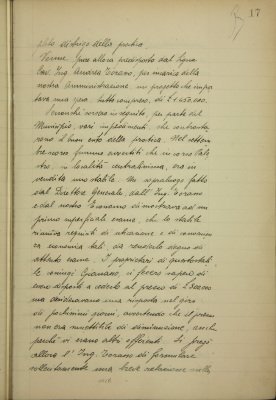 17
disbrigo della pratica.
Venne, pero allora predisposto dal Signor
Cav. Ing. Amareo Torano, per incarico della
nostra Amministrazione un progetto che impor
tava una spesa, tutto compreso, di £ 1.450.000.
Senonchè sorsero in seguito, per parte del
Municipio, vari impedimenti che contrasta
rono il buon esito della pratica. Nel settem
bre scorso fummo avvertiti che in corso Cala
in località centralissima, era in
vendita uno stabile. Un sopraluogo fatto
dal Direttore Generale, dall' Ing. Torano
e dal nostro Economo di mostrava ad un
primo superficiale esame, che lo stabile
riuniva requisiti di ubicazione e di convenien
za economica tali, da renderlo degno di
attento esame. I proprietari di questo stabi
le, coniugi, ci fecero sapere di
essere disposti a cederlo al prezzo di £
ma desideravano una risposta nel giro
di pochissimi giorni, avvertendo che il prezzo
non era suscettibile di diminuzione, anche
perchè vi erano altri offerenti. Si pregò
allora l' Ing. Torano di formulare
sollecitamente una breve relazione sulla